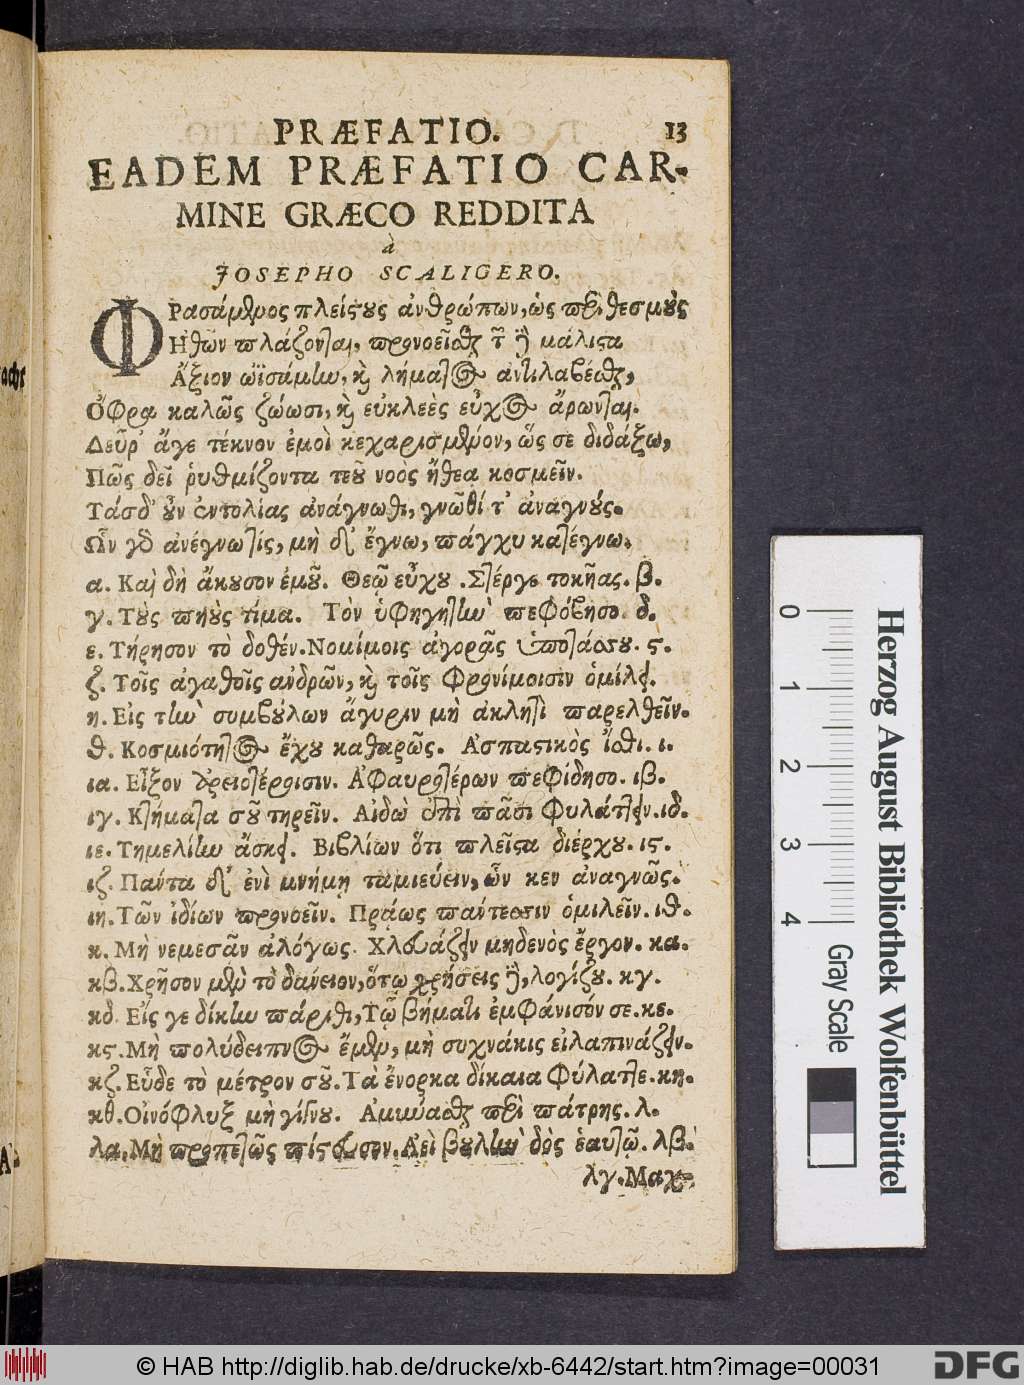 PRÆFATIO. 13
EADEM PRÆFATIO CAR-
MINE GRÆCO REDDITA
à
JOSEPHO SCALIGERO.
ΦΡασάμενος πλείςους ἀνθρώπων, ὡς περὶ θεσμοὺς
Ηθῶν πλάζονται, προνοεῖσθαι τε καὶ μάλιςα
Ἄξιον ὠϊσάμην, καὶ λήματος ἀντιλαβέσθαι,
Ὄφρα καλῶς ζώωσι, καὶ εὐκλεὲς εὖχος ἄρωνται.
Δεῦρ' ἄγε τέκνον ἐμοὶ κεχαρισμένον, ὥς σε διδάξω,
Πῶς δεῖ ῥυθμίζοντα τεοῦ νοος ἤθεα κοσμεῖν.
Τάσδ' οὖν ἐντολίας ἀνάγνωθι, γνῶθί τ' ἀναγνούς.
Ὧν γὸ ἀνέγνω τίς, μὴ δ' ἔγνω, πάγχυ κατέγνω.
α. Καὶ δὴ ἄκουσον ἐμοῦ. Θεῷ εὔχου. Στέργε τοκῆας. β.
γ. Τοὺς πηοὺς τίμα. Τὸν ὑφηγητὴν πεφόβησο. δ.
ε. Τήρησον τὸ δοθέν. Νομίμοις ἀγορᾶς ὑποτάσσου. ς.
ζ. Τοῖς ἀγαθοῖς ἀνδρῶν, καὶ τοῖς φρονίμοισιν ὁμίλει.
η. Εἰς τὴν συμβούλων ἄγυριν μὴ ἀκλητὶ παρελθεῖν.
θ. Κοσμιότητος ἔχου καθαρῶς. Ἀσπαςικὸς ἴσθι. ι.
ια. Εἶξον ἀρειοτέροισιν. Ἀφαυροτέρων πεφίδησο. ιβ.
ιγ. Κτήματα σοῦ τηρεῖν. Αἰδὼ ἐπὶ πᾶσι φυλάττειν. ιδ.
ιε. Τημελίην ἄσκει. Βιβλίων ὅτι πλεῖςα διέρχου. ις.
ιζ. Πάντα δ' ἐνὶ μνήμῃ ταμιεύειν, ὧν κεν ἀναγνῶς.
ιη. Τῶν ἰδίων προνοεῖν. Πράως πάντεσσιν ὁμιλεῖν. ιθ.
κ. Μὴ νεμεσᾶν ἀλόγως. Χλευάζειν μηδενὸς ἔργον. κα.
κβ. Χρῆσον μὲν τὸ δάνειον, ὅτῳ χρήσεις δὲ, λογίζου. κγ.
κδ. Εἴς γε δίκην πάριθι, Τῷ βήματι ἐμφάνισόν σε. κε.
κς. Μὴ πολύδειπνος ἔμεν, μὴ συχνάκις εἰλαπινάζειν.
κζ. Εὖδε τὸ μέτρον σοῦ. Τὰ ἔνορκα δίκαια φύλαττε. κη.
κθ. Οἰνόφλυξ μὴ γίγνου. Ἀμύνασθαι περὶ πάτρης. λ.
λα. Μὴ προπετῶς πίςευσον. Ἀεὶ βουλὴν δὸς ἑαυτῷ. λβ.
λγ. Μαχ-
Herzog August Bibliothek Wolfenbüttel
0 1 2 3 4
Gray Scale
© HAB http://diglib.hab.de/drucke/xb-6442/start.htm?image=00031
DFG